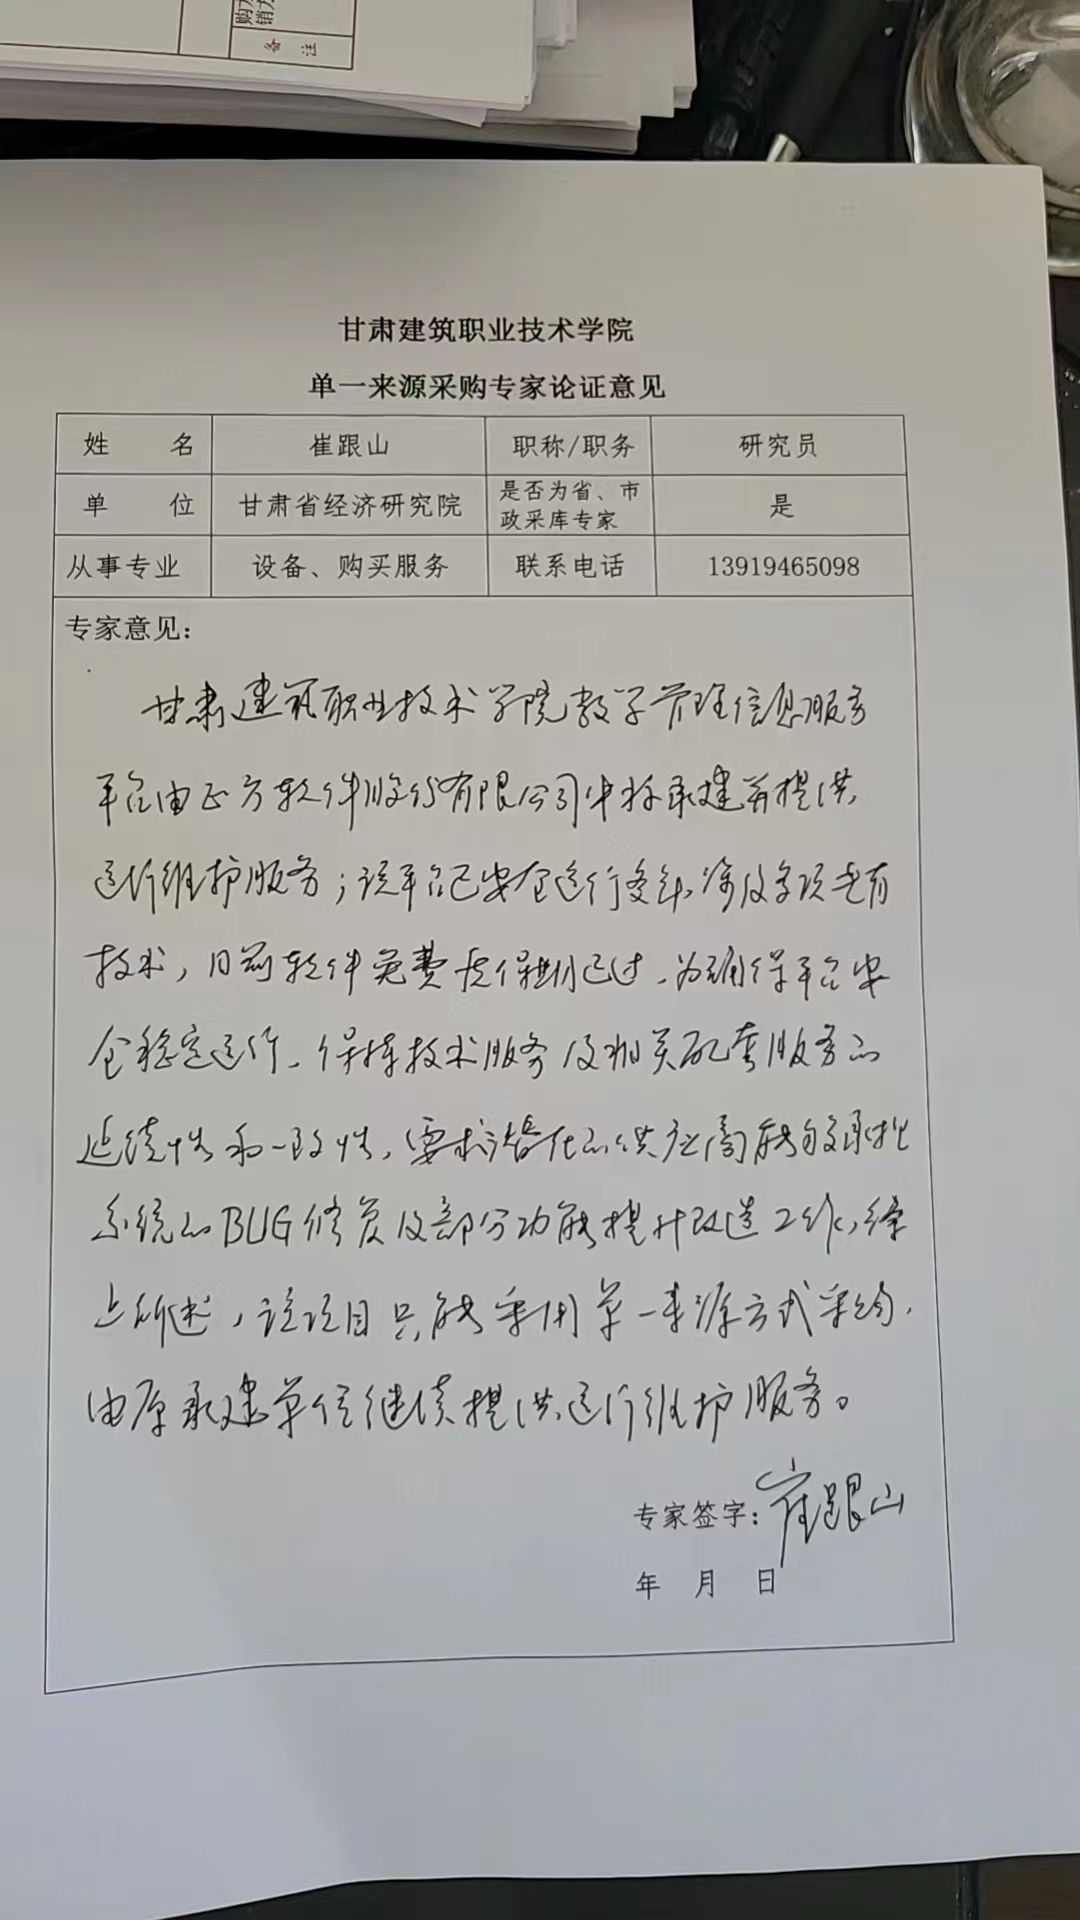 购
销
备 注
甘肃建筑职业技术学院
单一来源采购专家论证意见
姓 名 崔跟山 职称/职务 研究员
单 位 甘肃省经济研究院 是否为省、市政采库专家 是
从事专业 设备、购买服务 联系电话 13919465098
专家意见：
甘肃建筑职业技术学院教学管理信息服务
平台由正方软件股份有限公司中标承建并提供
运行维护服务；该平台已安全运行多年，涉及多项专有
技术，目前软件免费质保期已过，为确保平台安
全稳定运行、保持技术服务及相关配套服务的
延续性和一致性，要求潜在的供应商能够承担
系统的BUG修复及部分功能提升改造工作，综
上所述，该项目只能采用单一来源方式采购，
由原承建单位继续提供运行维护服务。
专家签字：崔跟山
年 月 日